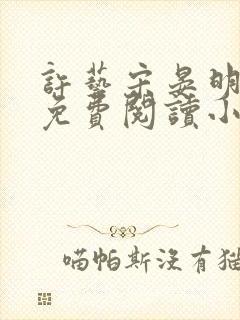 許藝宋晏明
免費閱讀小
喵帕斯沒有猫